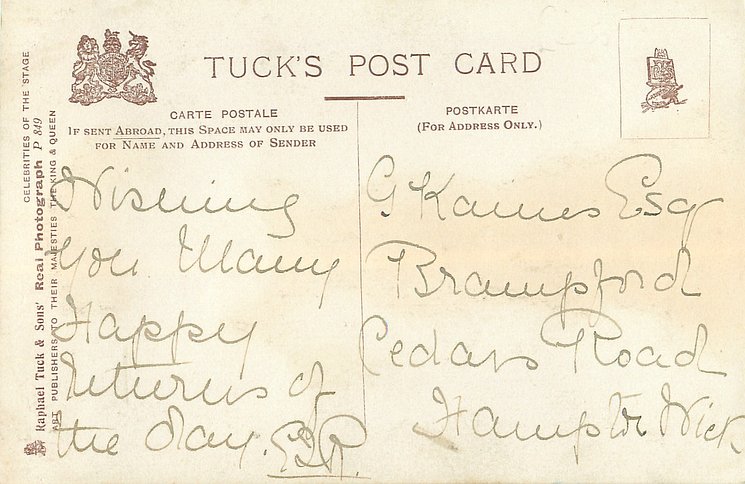 TUCK'S POST CARD
CARTE POSTALE
IF SENT ABROAD, THIS SPACE MAY ONLY BE USED
FOR NAME AND ADDRESS OF SENDER
POSTKARTE
(FOR ADDRESS ONLY.)
CELEBRITIES OF THE STAGE
Raphael Tuck & Sons' Real Photograph P 849
ART PUBLISHERS TO THEIR MAJESTIES THE KING & QUEEN
Wishing
you Many
Happy
Returns of
the day.
G Kaines Esq
Brampford
Cedars Road
Hampton Wick